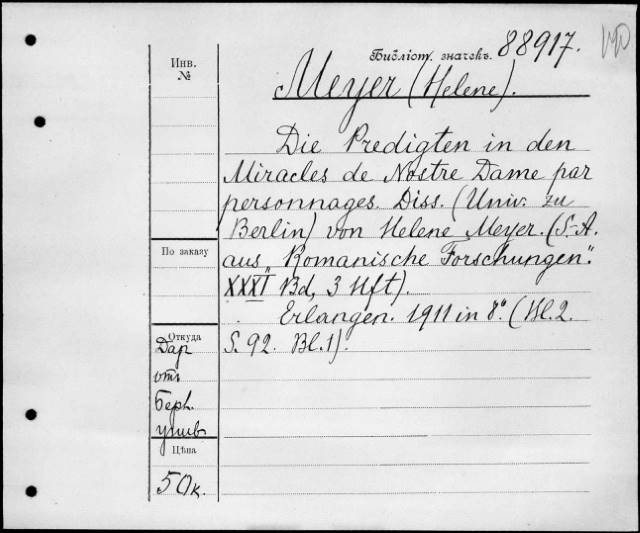 Библіот. значекъ. 88917.
Инв.
№
Meyer (Helene).
Die Predigten in den
Miracles de Nostre Dame par
personnages. Diss. (Univ. zu
Berlin) von Helene Meyer. (S.-A.
По заказу
aus „Romanische Forschungen“.
XXXI Bd, 3 Hft).
Erlangen. 1911 in 8°. (Bl. 2.
Откуда
S. 92. Bl. 1).
Дар
отъ
Берл.
унив
Цѣна
50к.